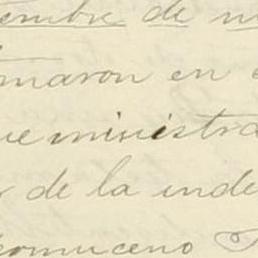 embre de m
maron en
ue ministra
de la inde
omuceno